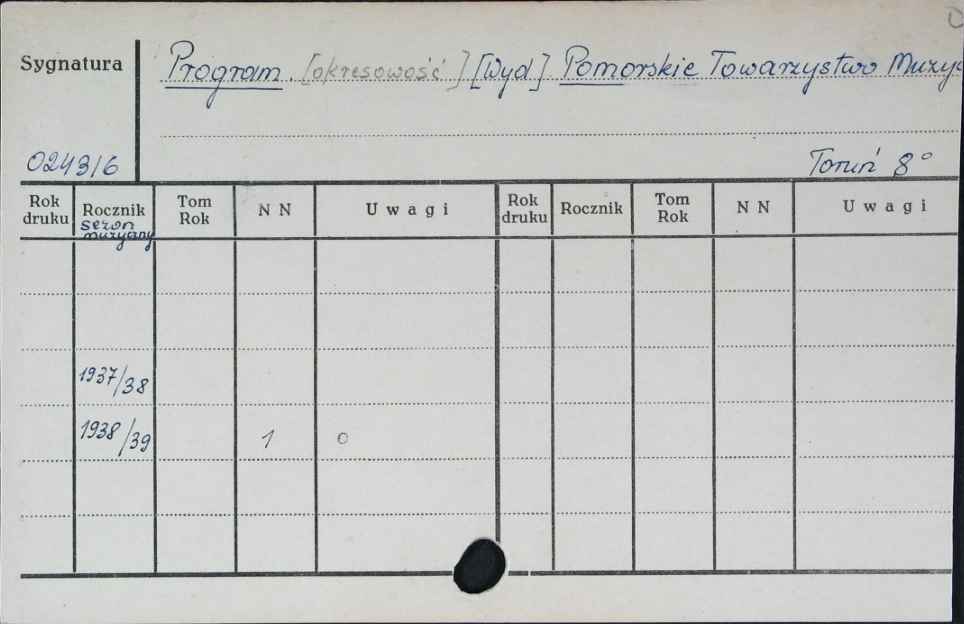 Sygnatura
Program. [okresowość] [Wyd] Pomorskie Towarzystwo Muzyc
0243/6
Toruń 8°
Rok druku Rocznik Tom Rok N N Uwagi Rok druku Rocznik Tom Rok N N Uwagi
sezon muzyczny
1937/38
1938/39 1 0